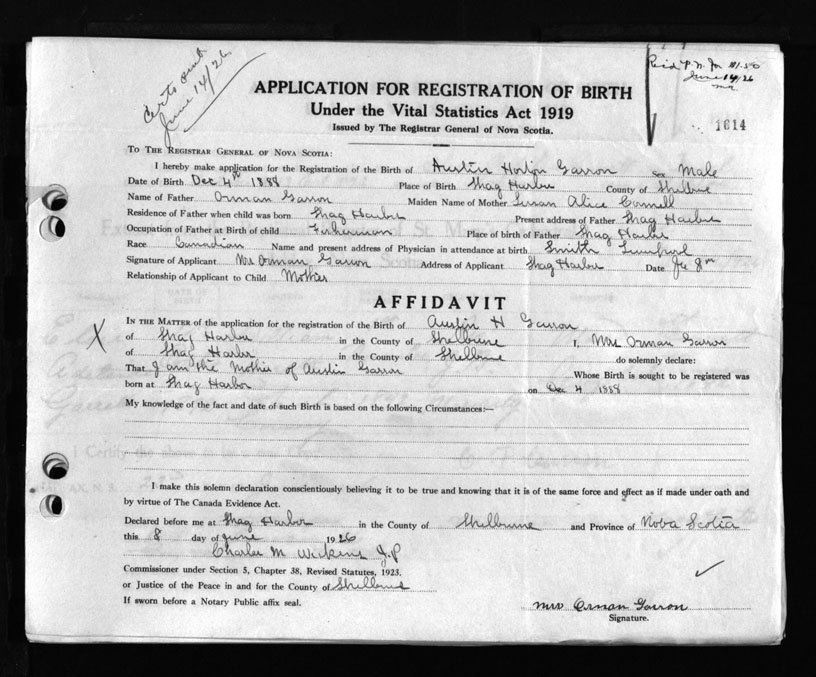 Certs sent
June 14/26
Paid P.N. for $1.50
June 14/26
APPLICATION FOR REGISTRATION OF BIRTH
Under the Vital Statistics Act 1919
Issued by The Registrar General of Nova Scotia.
1614
TO THE REGISTRAR GENERAL OF NOVA SCOTIA:
I hereby make application for the Registration of the Birth of Austin Horton Garron Sex Male
Date of Birth Dec 4th 1888 Place of Birth Shag Harbor County of Shelburne
Name of Father Orman Garron Maiden Name of Mother Susan Alice Connell
Residence of Father when child was born Shag Harbor Present address of Father Shag Harbor
Occupation of Father at Birth of child Fisherman Place of birth of Father Shag Harbor
Race Canadian Name and present address of Physician in attendance at birth Smith
Signature of Applicant Mrs Orman Garron Address of Applicant Shag Harbor Date
Relationship of Applicant to Child Mother
AFFIDAVIT
X
IN THE MATTER of the application for the registration of the Birth of Austin H Garron
of Shag Harbor in the County of Shelburne I, Mrs Orman Garron
of Shag Harbor in the County of Shelburne do solemnly declare:
That I am the Mother of Austin Garron Whose Birth is sought to be registered was
born at Shag Harbor on Dec 4 1888
My knowledge of the fact and date of such Birth is based on the following Circumstances:—
I make this solemn declaration conscientiously believing it to be true and knowing that it is of the same force and effect as if made under oath and
by virtue of The Canada Evidence Act.
Declared before me at Shag Harbor in the County of Shelburne and Province of Nova Scotia
this 8 day of June 1926
Charles M Wickens J.P
Commissioner under Section 5, Chapter 38, Revised Statutes, 1923.
or Justice of the Peace in and for the County of Shelburne
If sworn before a Notary Public affix seal.
Mrs Orman Garron
Signature.